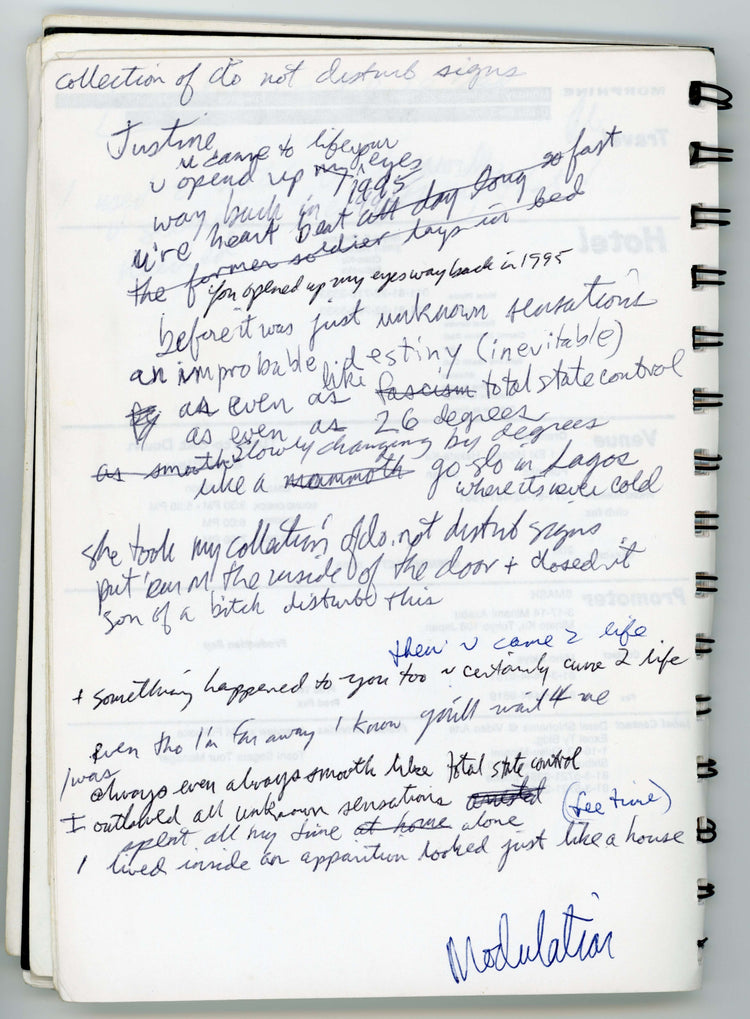 collection of do not disturb signs
Justine
u came to life your
u opend up my eyes
way back in 1995
u're heart beat all day long so fast
the former soldier lays in bed
You opened up my eyes way back in 1995
before it was just unknown sensations
an improbable destiny (inevitable)
like
as even as fascism total state control
as even as 26 degrees
as smooth slowly changing by degrees
like a mammoth go slo in Lagos
where its never cold
she took my collection of do not disturb signs
put 'em on the inside of the door + closed it
son of a bitch disturb this
then u came 2 life
+ something happened to you too u certainly came 2 life
even tho I'm far away I know you'll wait 4 me
I was
always even always smooth like total state control
I outlawed all unknown sensations (see time)
spent all my time at home alone
I lived inside an apparition looked just like a house
Modulation
MORPHINE
Travel
Hotel
Venue
Promoter